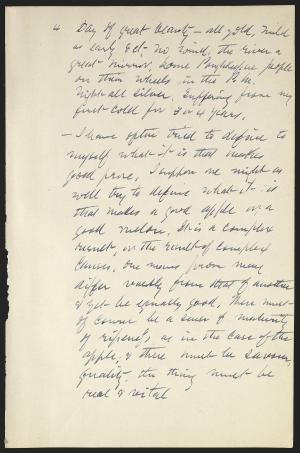 4 Day of great beauty - all gold, mild
as early Oct. No wind, the river a
great mirror. Some Poughkeepsie people
on their wheels in the P.M.
Night all silver. Suffering from my
first cold for 3 or 4 years.
- I have often tried to define to
myself what it is that makes
good prose. I suppose one might as
well try to define what it is
that makes a good apple or a
good melon. It is a complex
result, or the result of complex
causes, one man's prose may
differ vastly from that of another
& yet be equally good. There must
of course be a sense of maturity
of ripeness, as in the case of the
apple, & there must be savour,
quality. The thing must be
real & vital